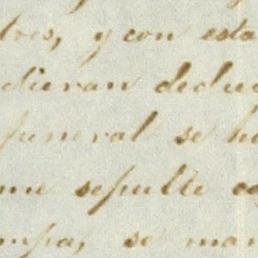 tres, y con esta
dieran deduc
funeral se h
me sepulte
mpa, se man